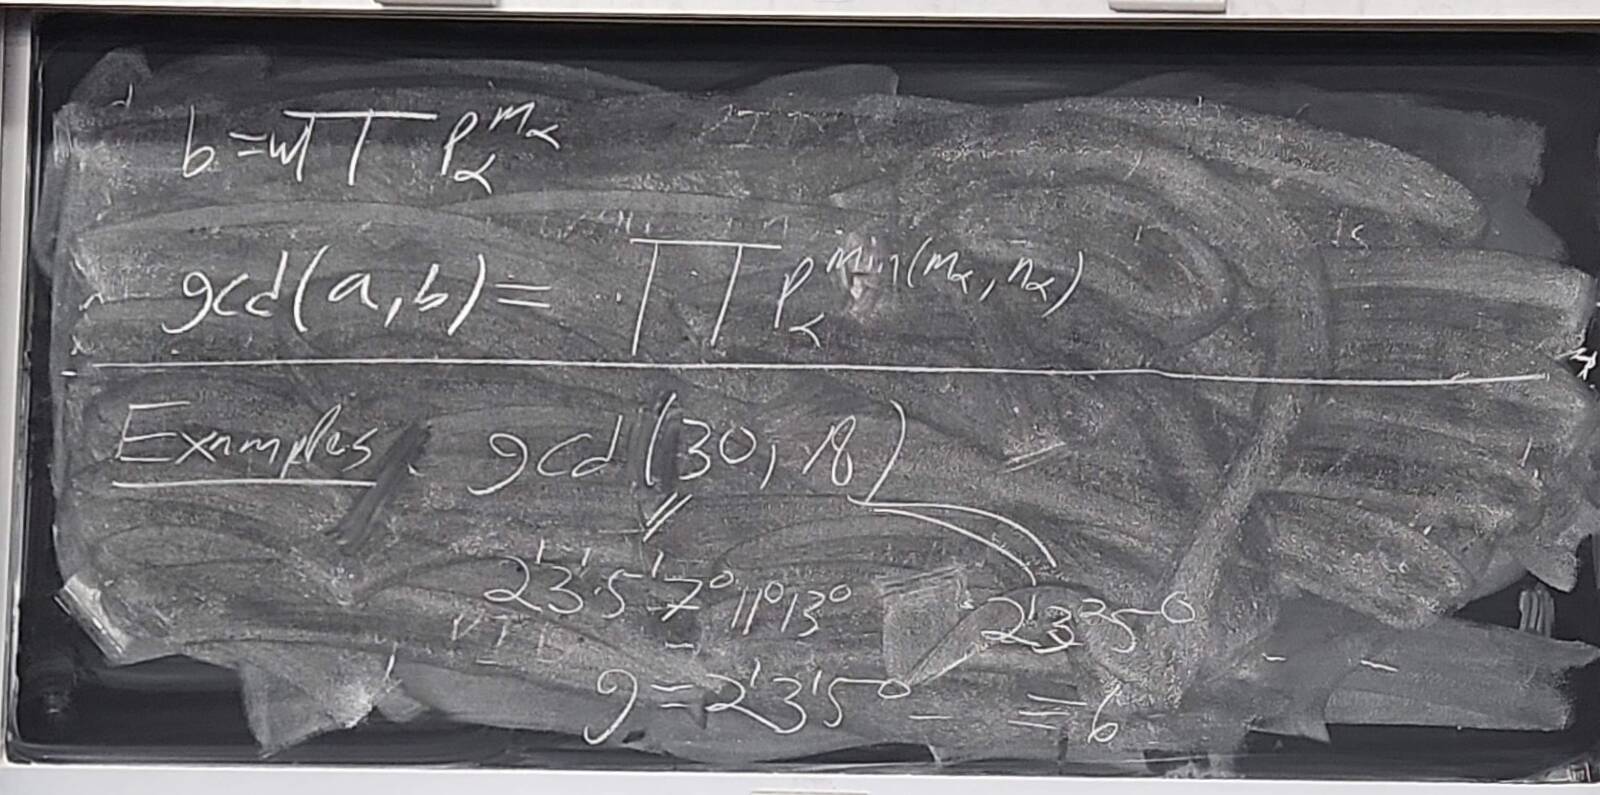 b = w∏ p_α^{m_α}
gcd(a,b) = ∏ p_α^{min(m_α, n_α)}
Examples. gcd(30, 18)
2¹3¹5¹7⁰11⁰13⁰ -
2¹3²5⁰ - -
g = 2¹3¹5⁰ - = 6